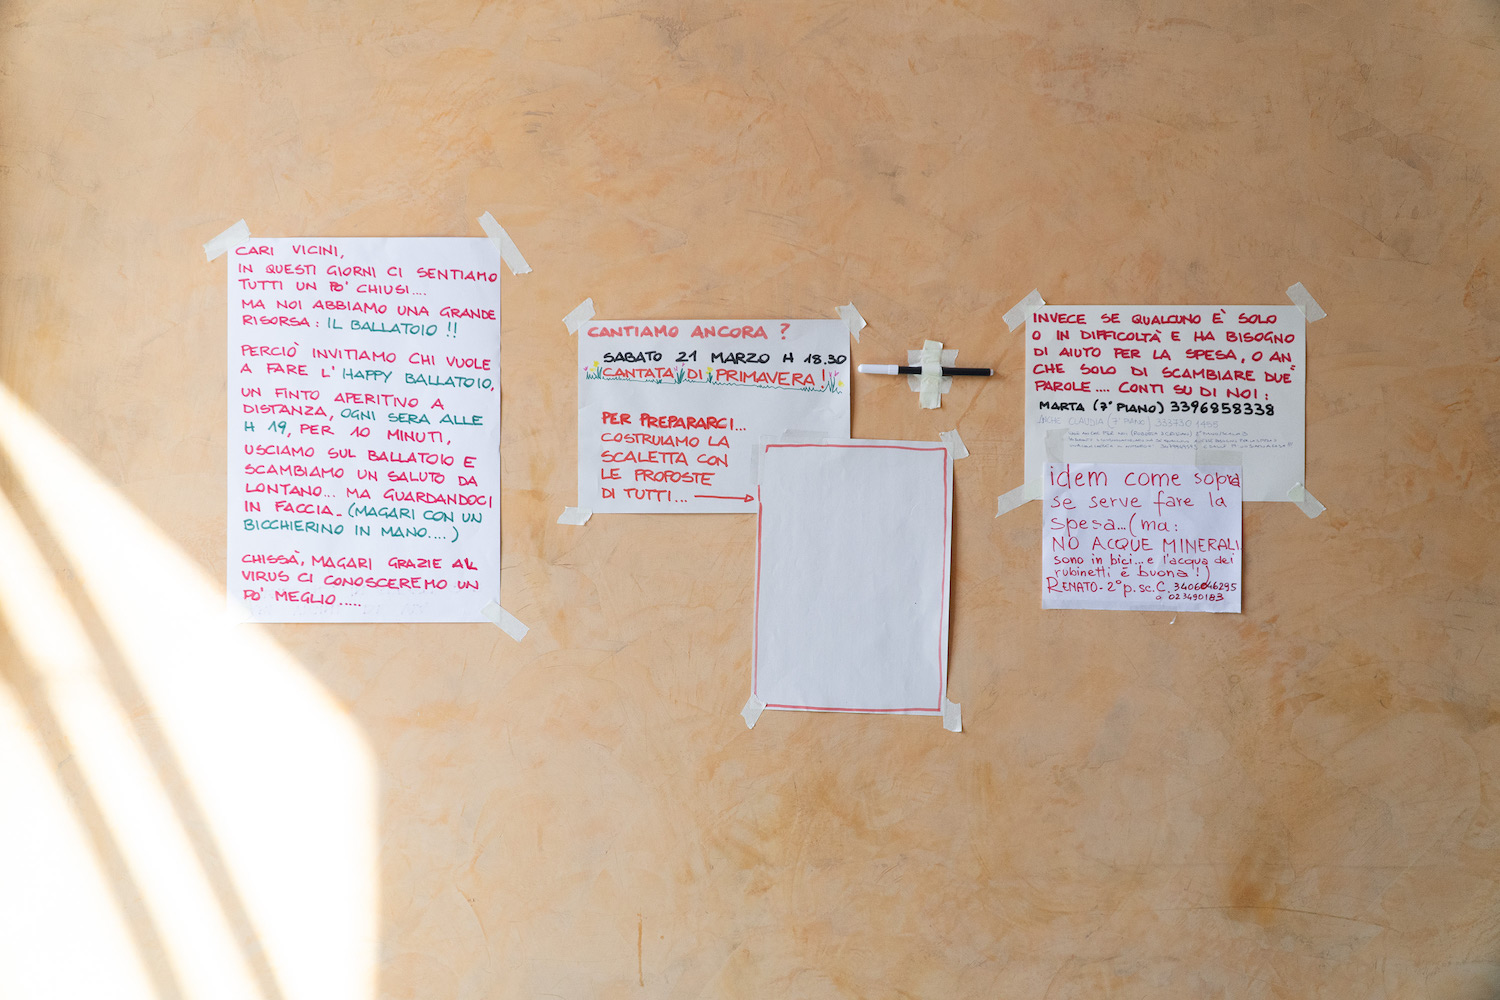 CARI VICINI,
IN QUESTI GIORNI CI SENTIAMO
TUTTI UN PO' CHIUSI....
MA NOI ABBIAMO UNA GRANDE
RISORSA: IL BALLATOIO !!
PERCIÒ INVITIAMO CHI VUOLE
A FARE L'HAPPY BALLATOIO,
UN FINTO APERITIVO A
DISTANZA, OGNI SERA ALLE
H 19, PER 10 MINUTI,
USCIAMO SUL BALLATOIO E
SCAMBIAMO UN SALUTO DA
LONTANO... MA GUARDANDOCI
IN FACCIA. (MAGARI CON UN
BICCHIERINO IN MANO....)
CHISSÀ, MAGARI GRAZIE AL
VIRUS CI CONOSCEREMO UN
PO' MEGLIO.....
CANTIAMO ANCORA ?
SABATO 21 MARZO H 18.30
CANTATA DI PRIMAVERA!
PER PREPARARCI...
COSTRUIAMO LA
SCALETTA CON
LE PROPOSTE
DI TUTTI...
INVECE SE QUALCUNO È SOLO
O IN DIFFICOLTÀ E HA BISOGNO
DI AIUTO PER LA SPESA, O AN
CHE SOLO DI SCAMBIARE DUE"
PAROLE.... CONTI SU DI NOI:
MARTA (7° PIANO) 3396858338
ANCHE CLAUDIA (7 PIANO)
idem come sopra
se serve fare la
spesa...(ma:
NO ACQUE MINERALI
sono in bici...e l'acqua dei
rubinetti è buona!)
RENATO-2°p.sc.C. 3406046295
o 023490183